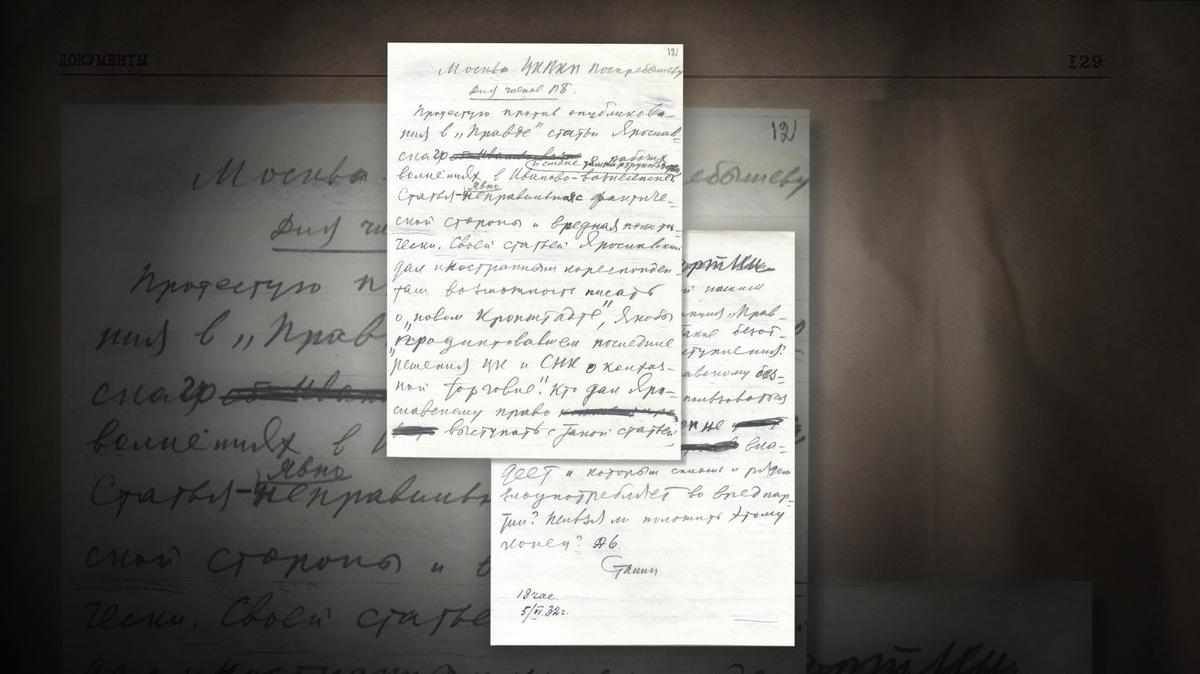 ДОКУМЕНТЫ
129
12
Москва. ЦКВКП Поскребышеву
Для членов ПБ.
Протестую против опубликова-
ния в „Правде" статьи Ярослав-
ского
и смене
волнениях в Иваново-Вознесенске
явно
Статья – неправильная с фактиче-
ской стороны и вредная полити-
чески. Своей статьей Ярославский
дал иностранным кореспонден-
там возможность писать
о „новом Кронштадте", якобы
продиктовавшем последние
решения ЦК и СНК о колхоз-
ной торговле". Кто дал Яро-
славскому право
выступать с такой статьей
партии
„Прав-
ступления?
авскому без-
пользоваться
не
вла-
деет и которым сплошь и рядом
злоупотребляет во вред пар-
тии? Нельзя ли положить этому
конец? №6.
Сталин
18 час.
5/VI.32 г.
12
Москва.
ебышеву
Для чл
Протестую п
ния в „Прав
ского
волнениях в И
явно
Статья – неправильн
ской стороны и в
чески. Своей стать